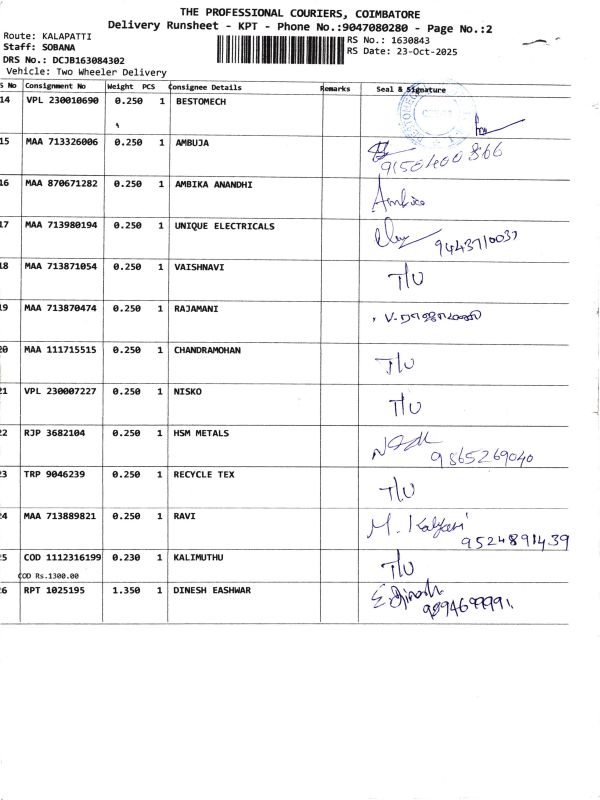 THE PROFESSIONAL COURIERS, COIMBATORE
Delivery Runsheet - KPT - Phone No.:9047080280 - Page No.:2
Route: KALAPATTI
Staff: SOBANA
RS No.: 1630843
DRS No.: DCJB163084302
RS Date: 23-Oct-2025
Vehicle: Two Wheeler Delivery
S No Consignment No Weight PCS Consignee Details Remarks Seal & Signature
14 VPL 230010690 0.250 1 BESTOMECH
15 MAA 713326006 0.250 1 AMBUJA
9150400866
16 MAA 870671282 0.250 1 AMBIKA ANANDHI Ambica
17 MAA 713980194 0.250 1 UNIQUE ELECTRICALS
9443710037
18 MAA 713871054 0.250 1 VAISHNAVI T/U
19 MAA 713870474 0.250 1 RAJAMANI
20 MAA 111715515 0.250 1 CHANDRAMOHAN T/U
21 VPL 230007227 0.250 1 NISKO T/U
22 RJP 3682104 0.250 1 HSM METALS
9865269040
23 TRP 9046239 0.250 1 RECYCLE TEX T/U
24 MAA 713889821 0.250 1 RAVI M. Kalyani
9524891439
25 COD 1112316199 0.230 1 KALIMUTHU T/U
COD Rs.1300.00
26 RPT 1025195 1.350 1 DINESH EASHWAR E. Dinesh
9994699991